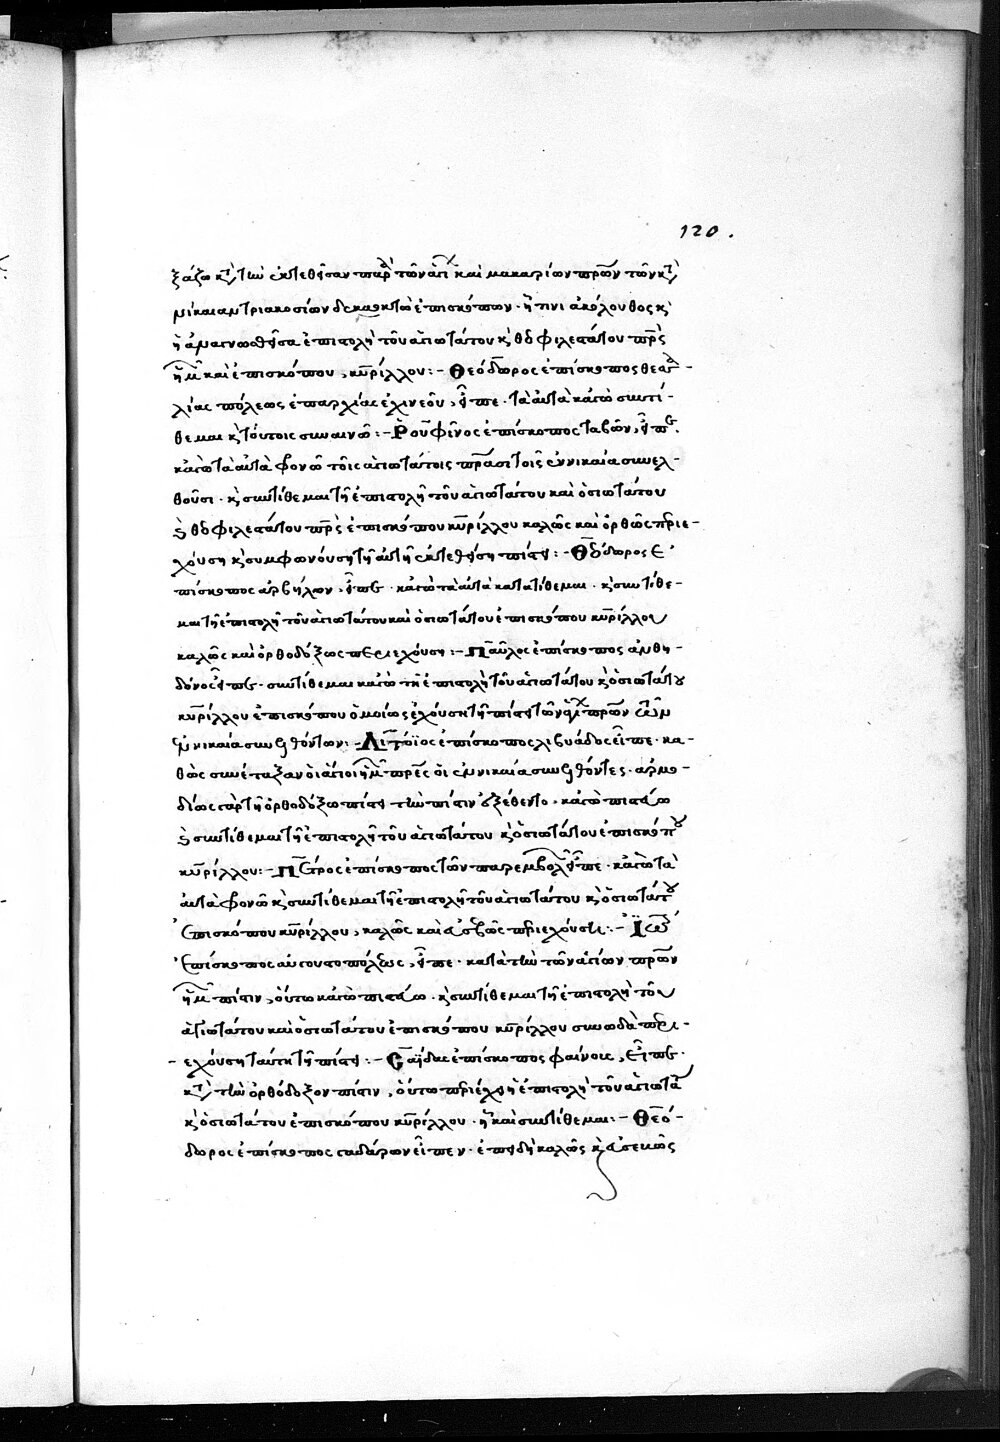 120.
ξάζω κατὰ τὴν ἐκτεθεῖσαν παρὰ τῶν ἁγίων καὶ μακαρίων πρων τῶν κατὰ
νίκαιαν τριακοσίων δεκαοκτὼ ἐπισκόπων· ἧ τινι ἀκόλουθος κ
ἡ ἀναγνωσθεῖσα ἐπιστολὴ τοῦ ἁγιωτάτου κ θεοφιλεστάτου πρς
ἡμ καὶ ἐπισκόπου κυρίλλου:- Θεόδωρος ἐπίσκοπος
πόλεως ἐπαρχίας ἐχινεου, εἶπε· τὰ αὐτὰ κἀγὼ συντί-
θεμαι κ τούτοις συναινῶ:- Ῥουφῖνος ἐπίσκοπος ταβῶν, εἶπεν.
κἀγὼ τὰ αὐτὰ φρονῶ τοῖς ἁγιωτάτοις πράσι τοῖς ἐν νικαία συνελ-
θοῦσι· κ συντίθεμαι τῆ ἐπιστολῆ τοῦ ἁγιωτάτου καὶ ὁσιωτάτου
κ θεοφιλεστάτου πρς ἐπισκόπου κυρίλλου καλῶς καὶ ὀρθῶς περιε-
χούση κ συμφωνούση τῆ αὐτῆ ἐκτεθείση πίστει:- Θεόδωρος ἐ
πίσκοπος ἀρβήλων, εἶπεν· κἀγὼ τὰ αὐτὰ κατατίθεμαι· κ συντίθε-
μαι τῆ ἐπιστολῆ τοῦ ἁγιωτάτου καὶ ὁσιωτάτου ἐπισκόπου κυρίλλου
καλῶς καὶ ὀρθοδόξως περιεχούση:- Παῦλος ἐπίσκοπος ἀνθη-
δόνος εἶπεν· συντίθεμαι κἀγὼ τῆ ἐπιστολῆ τοῦ ἁγιωτάτου κ ὁσιωτάτου
κυρίλλου ἐπισκόπου ὁμοίως ἐχούση τῆ πίστει τῶν ἁγίων πρων ἡμῶν
ἐν νικαία συνελθόντων:- Λιτόϊος ἐπίσκοπος λιβυάδος εἶπε· κα-
θὼς συνέταξαν οἱ ἅγιοι ἡμ πρες οἱ ἐν νικαία συνελθόντες· ἁρμο-
δίως γὰρ τῆ ὀρθοδόξω πίστει τὴν πίστιν ἐξέθεντο· κἀγὼ πιστεύω
κ συντίθεμαι τῆ ἐπιστολῆ τοῦ ἁγιωτάτου κ ὁσιωτάτου ἐπισκόπου
κυρίλλου:- Πέτρος ἐπίσκοπος τῶν παρεμβολῶν εἶπε· κἀγὼ τὰ
αὐτὰ φρονῶ κ συντίθεμαι τῆ ἐπιστολῆ τοῦ ἁγιωτάτου κ ὁσιωτάτου
ἐπισκόπου κυρίλλου, καλῶς καὶ εὐσεβῶς περιεχούση:- Ἰω
ἐπίσκοπος αὐγουστοπόλεως, εἶπε· κατὰ τὴν τῶν ἁγίων πρων
ἡμ πίστιν, οὕτω κἀγὼ πιστεύω· κ συντίθεμαι τῆ ἐπιστολῆ τοῦ
ἁγιωτάτου καὶ ὁσιωτάτου ἐπισκόπου κυρίλλου συνωδὰ περι-
εχούση ταύτη τῆ πίστει:- Σαΐδας ἐπίσκοπος φαίνοις, εἶπεν·
κατὰ τὴν ὀρθόδοξον πίστιν, οὕτω περιέχει ἡ ἐπιστολὴ τοῦ ἁγιωτά
κ ὁσιωτάτου ἐπισκόπου κυρίλλου· ἧ καὶ συντίθεμαι:- Θεό-
δωρος ἐπίσκοπος γαδάρων εἶπεν· ἐπειδὴ καλῶς κ εὐσεβῶς